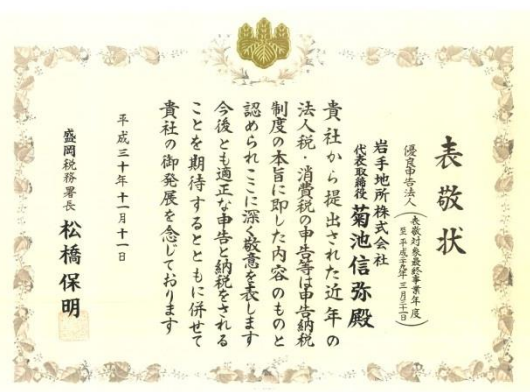 表敬状
優良申告法人
(表敬対象最終事業年度
至平成三十年三月三十一日)
岩手地所株式会社
代表取締役 菊池信弥殿
貴社から提出された近年の
法人税・消費税の申告等は申告納税
制度の本旨に即した内容のものと
認められここに深く敬意を表します
今後とも適正な申告と納税をされる
ことを期待するとともに併せて
貴社の御発展を念じております
平成三十年十一月十一日
盛岡税務署長 松橋保明